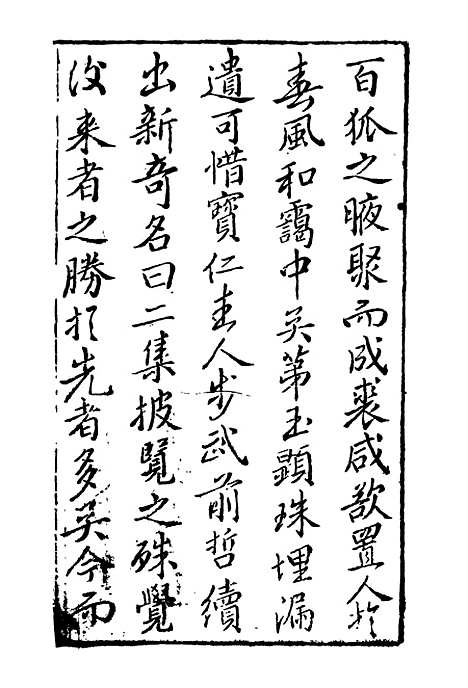 百狐之腋聚而成裘咸欲置人於
春風和靄中矣第玉顯珠埋漏
遺可惜寶仁主人步武前哲續
出新奇名曰二集披覽之殊覺
後来者之勝於先者多矣今而